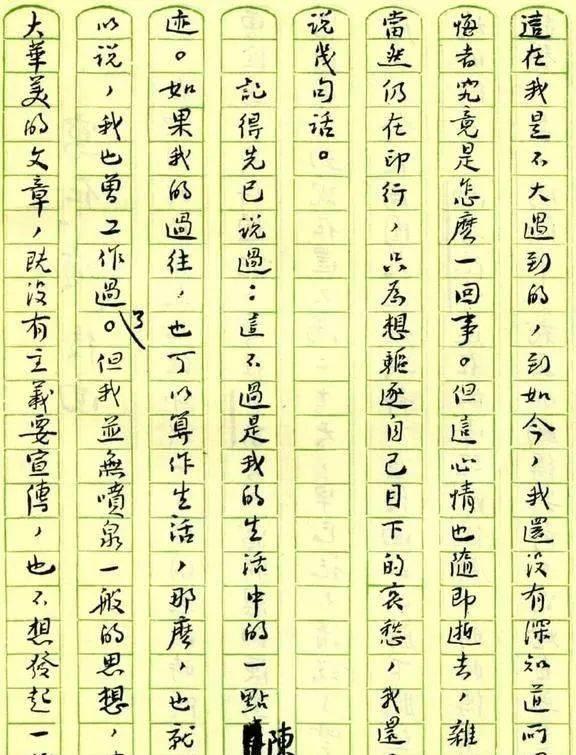 這在我是不大遇到的,到如今,我還沒有深知道所
悔者究竟是怎麽一回事。但這心情也隨即逝去,雜
當然仍在印行,只為想驅逐自己目下的哀愁,我還
說幾句話。
記得先已說過:這不過是我的生活中的一點陳
迹。如果我的過往,也可以算作生活,那麽,也就
以說,我也曾工作過了。但我並無噴泉一般的思想,
大華美的文章,既沒有主義要宣傳,也不想發起一